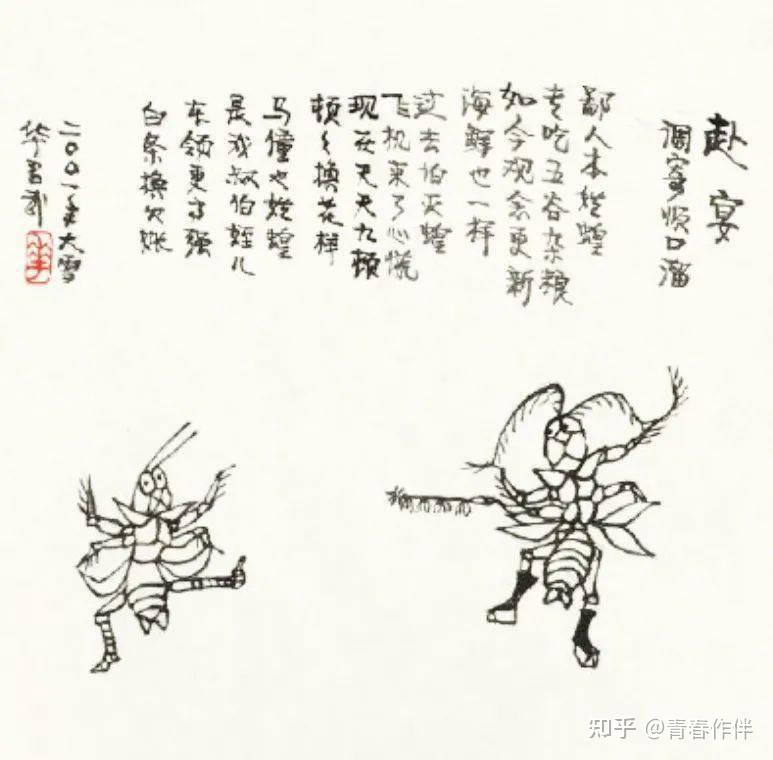 赴宴
调寄顺口溜
鄙人本姓蝗
专吃五谷杂粮
如今观念更新
海鲜也一样
过去怕灭蝗
飞机来了心慌
现在天天九顿
顿々换花样
马僮也姓蝗
是我叔伯姪儿
本领更高强
白条换欠账
二〇〇一年大雪
华君武
知乎 @青春作伴